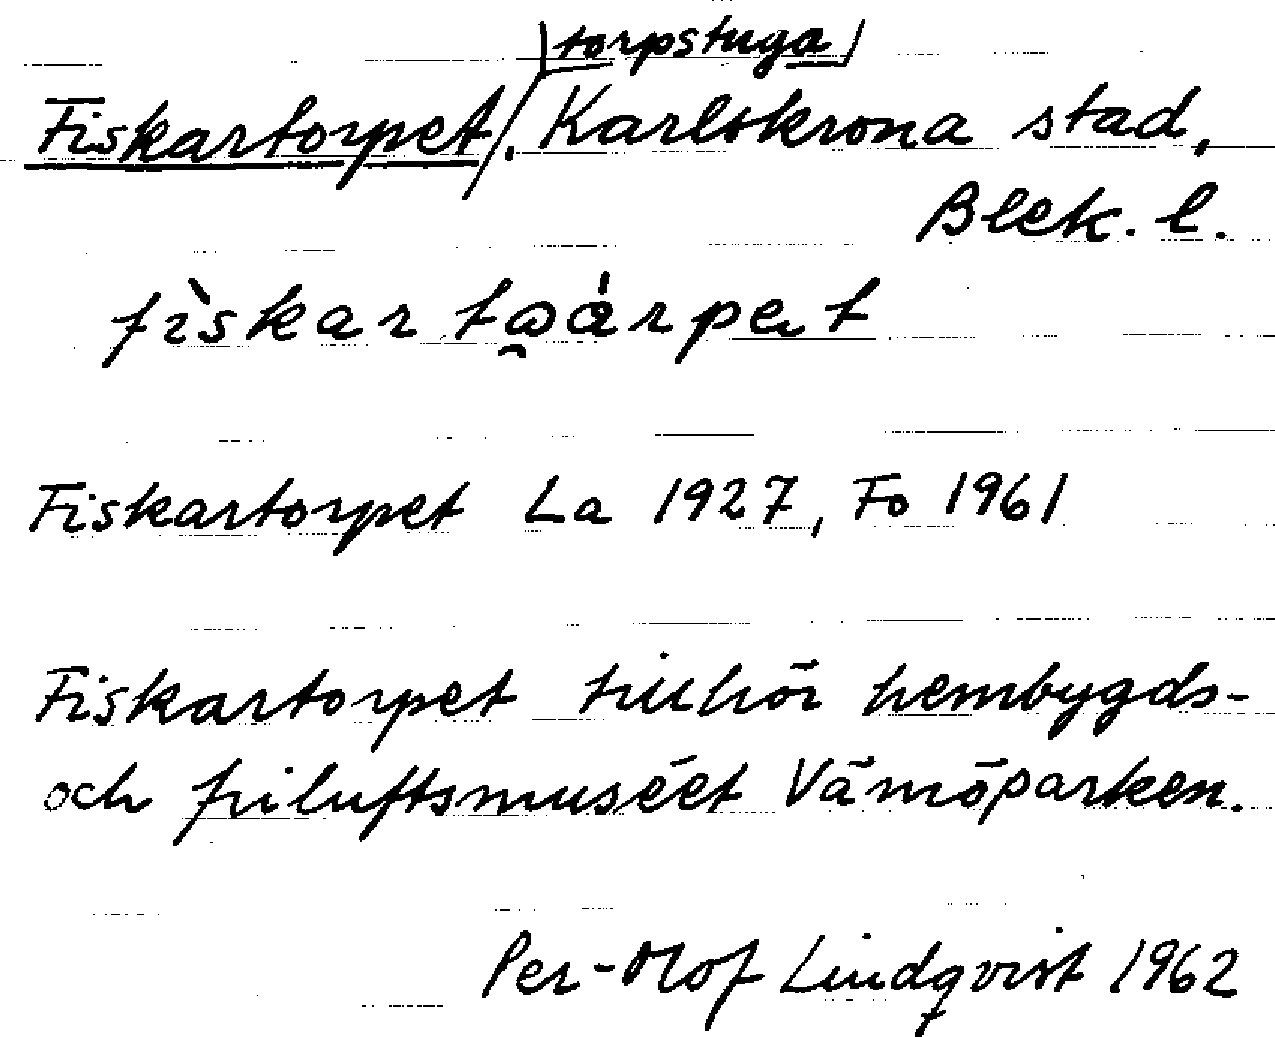 torpstuga
Fiskartorpet. Karlskrona stad,
Blek. l.
Fiskartorpet La 1927, Fo 1961
Fiskartorpet tillhör hembygds-
och friluftsmuséet Vämöparken.
Per-Olof Lindqvist 1962